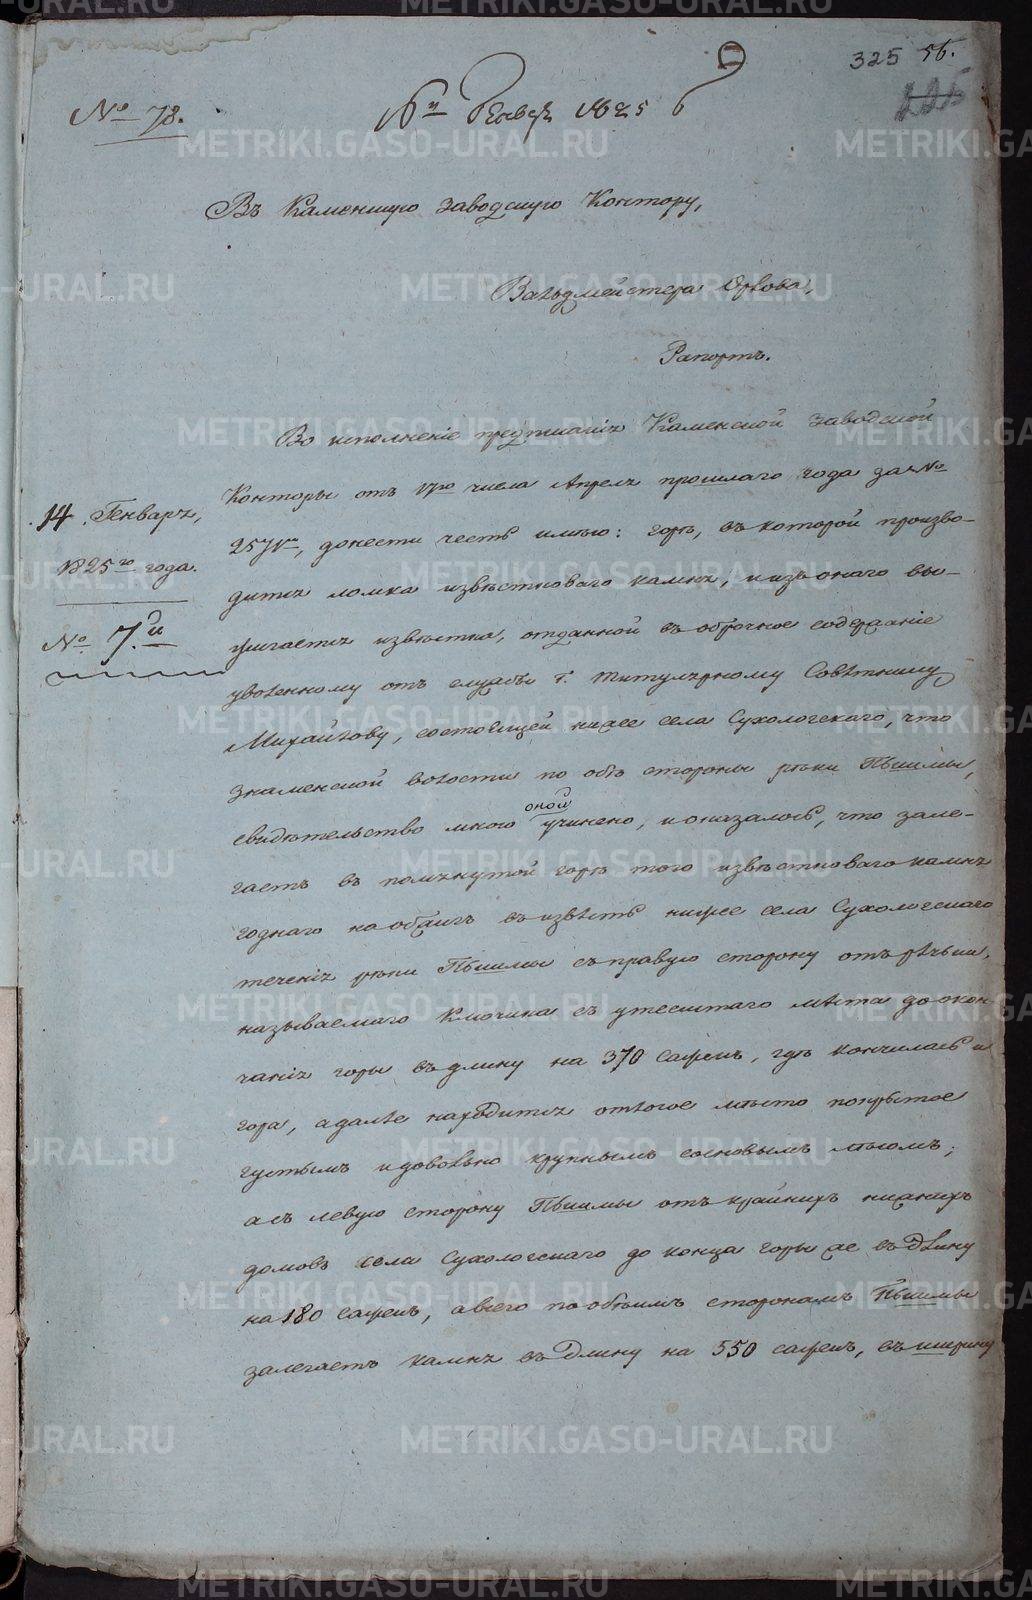 325 56.
226
№ 78.
Генвр 1825
Въ Каменскую Заводскую Контору,
Вальдмейстера Орлова,
Рапортъ.
14 Генваря,
1825го года.
№ 7.й
Во исполненіе предписанія Каменской Заводской
Конторы отъ 17го числа Апреля прошлаго года за №
257м, донести честь имѣю: горѣ, въ которой произво-
дится ломка известковаго камня, и изъ онаго вы-
жигается известка, отданной въ оброчное содержаніе
уволенному отъ службы г. Титулярному Совѣтнику
Михайлову, состоящей ниже села Сухологскаго, что
Знаменской волости по обѣ стороны рѣки Пышмы,
свидѣтельство мною оной учинено, и оказалось, что зале-
гаетъ въ помянутой горѣ того извѣстковаго камня
годнаго на обжигъ въ извѣсть ниже села Сухологскаго
теченія рѣки Пышмы съ правую сторону отъ рѣчки,
называемаго Ключика съ утесистаго мѣста до окон-
чанія горы въ длину на 370 сажень, гдѣ кончилась и
гора, а далѣе находится отлогое мѣсто покрытое
густымъ и довольно крупнымъ сосновымъ лѣсомъ;
а съ левую сторону Пышмы отъ крайнихъ нижнихъ
домовъ села Сухологскаго до конца горы же въ длину
на 180 сажень, а всего по обѣимъ сторонамъ Пышмы
залегаетъ камня въ длину на 550 сажень, въ ширину
METRIKI.GASO-URAL.RU